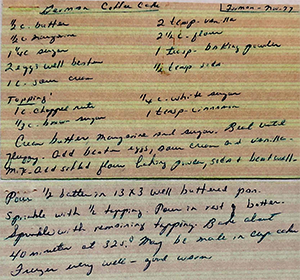 German Coffee Cake
1/2 c. butter 2 teasp. vanilla
1/2 c. margarine 2 1/2 c. flour
1 1/2 c sugar 1 teasp. baking powder
2 eggs well beaten 1/2 teasp soda
1 c. sour cream
Topping:
1 c. chopped nuts 1/4 c. white sugar
1/3 c. brown sugar 1 teasp. cinnamon
Cream butter margarine and sugar. Beat until
fluffy. Add beaten eggs, sour cream and vanilla.
Mix. Add sifted flour baking powder, soda & beat well.
Pour 1/2 batter in 13 X 3 well buttered pan.
Sprinkle with 1/2 topping. Pour in rest of batter.
Sprinkle with remaining topping. Bake about
40 minutes at 325.° May be made in cup cake
Freezes very well - good warm